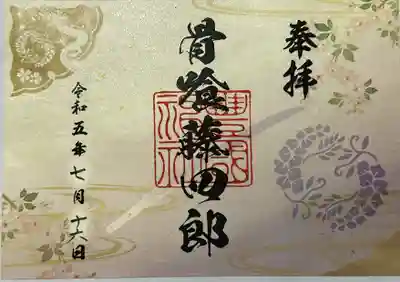 奉拝
骨喰藤四郎
豊国神社
令和五年七月十六日